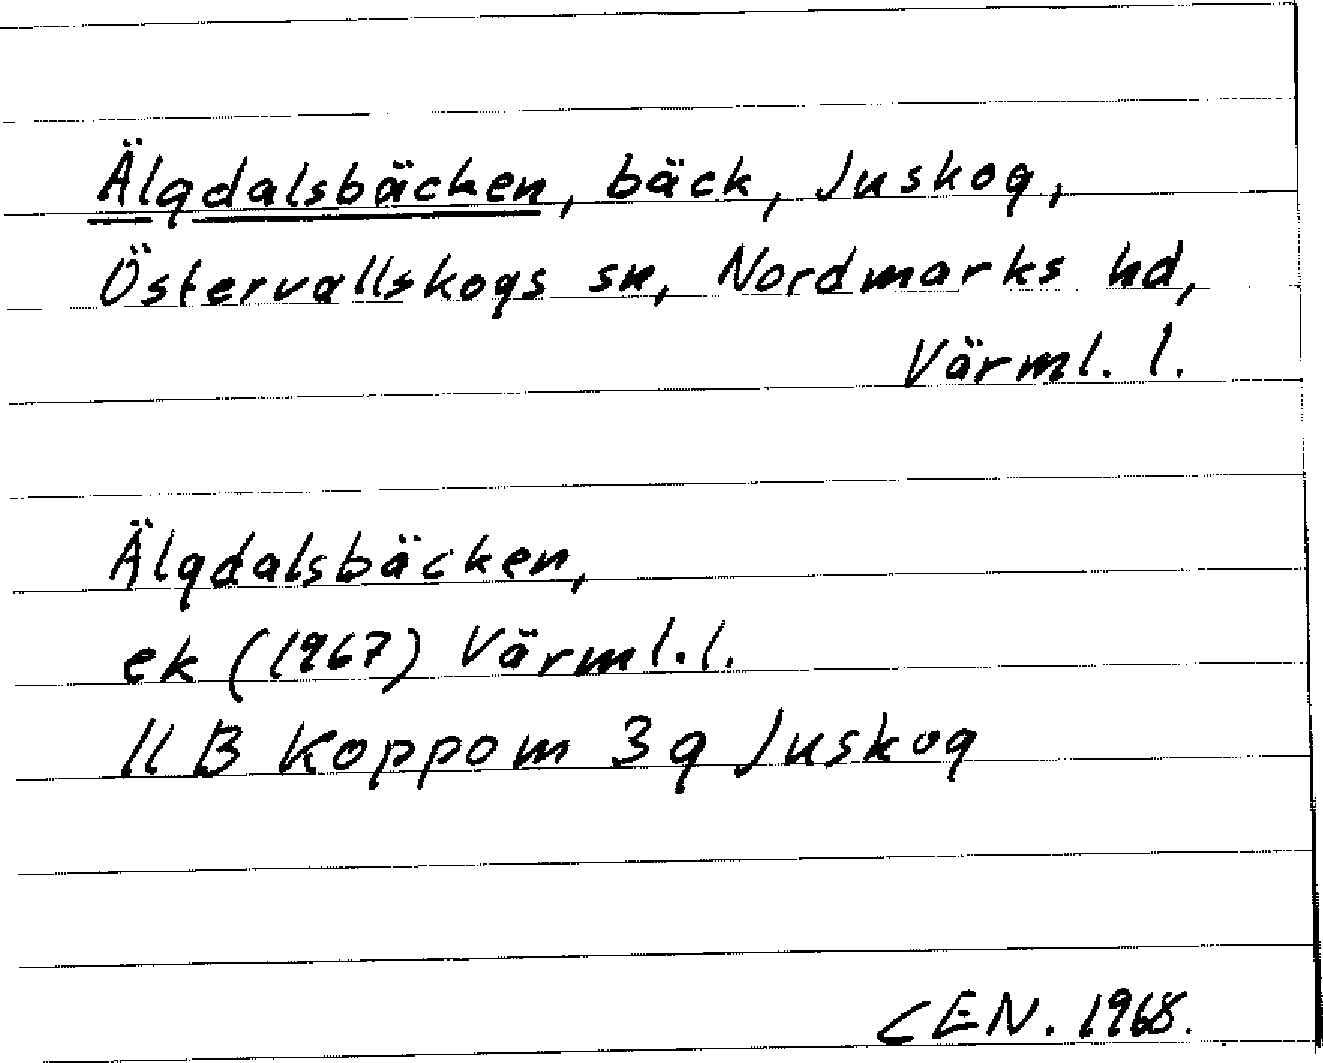 Älgdalsbäcken, bäck, Juskog,
Östervallskogs sn, Nordmarks hd,
Värml. l.
Älgdalsbäcken,
ek (1967) Värml.l.
11 B Koppom 3g Juskog
CEN. 1968.